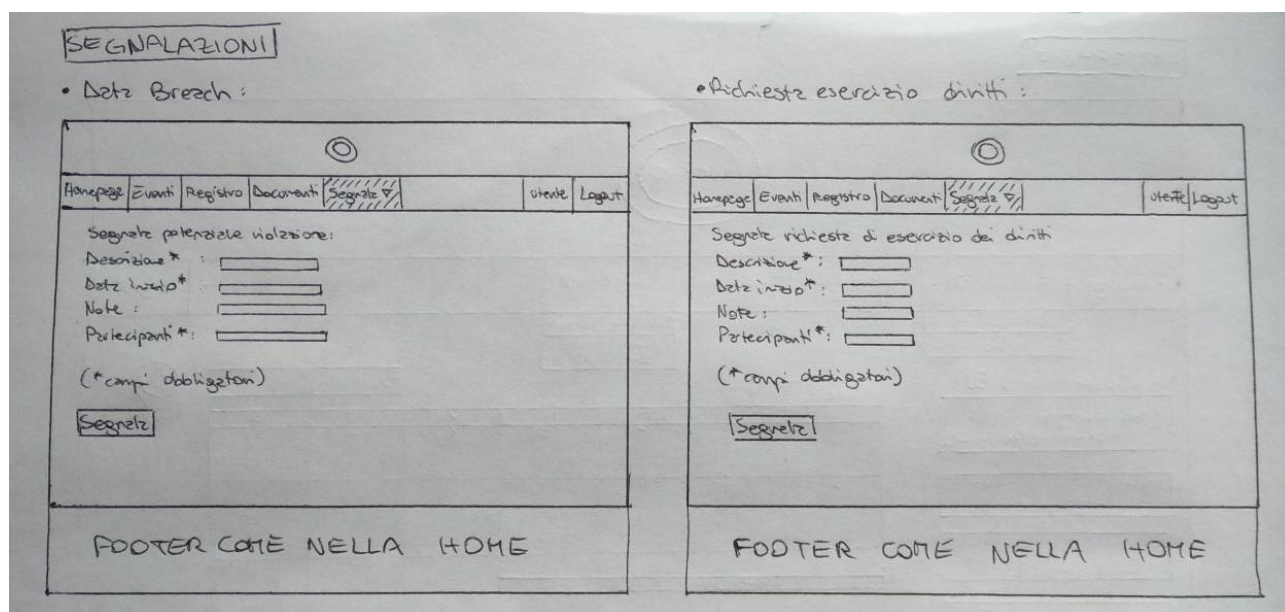 SEGNALAZIONI
• Data Breach :
Homepage Eventi Registro Documenti Segnala Utente Logout
Segnala potenziale violazione:
Descrizione* :
Data inizio*
Note :
Partecipanti*:
(*campi obbligatori)
Segnala
FOOTER COME NELLA HOME
• Richiesta esercizio diritti :
Homepage Eventi Registro Documenti Segnala Utente Logout
Segnala richiesta di esercizio dei diritti
Descrizione*:
Data inizio*:
Note :
Partecipanti*:
(*campi obbligatori)
Segnala
FOOTER COME NELLA HOME